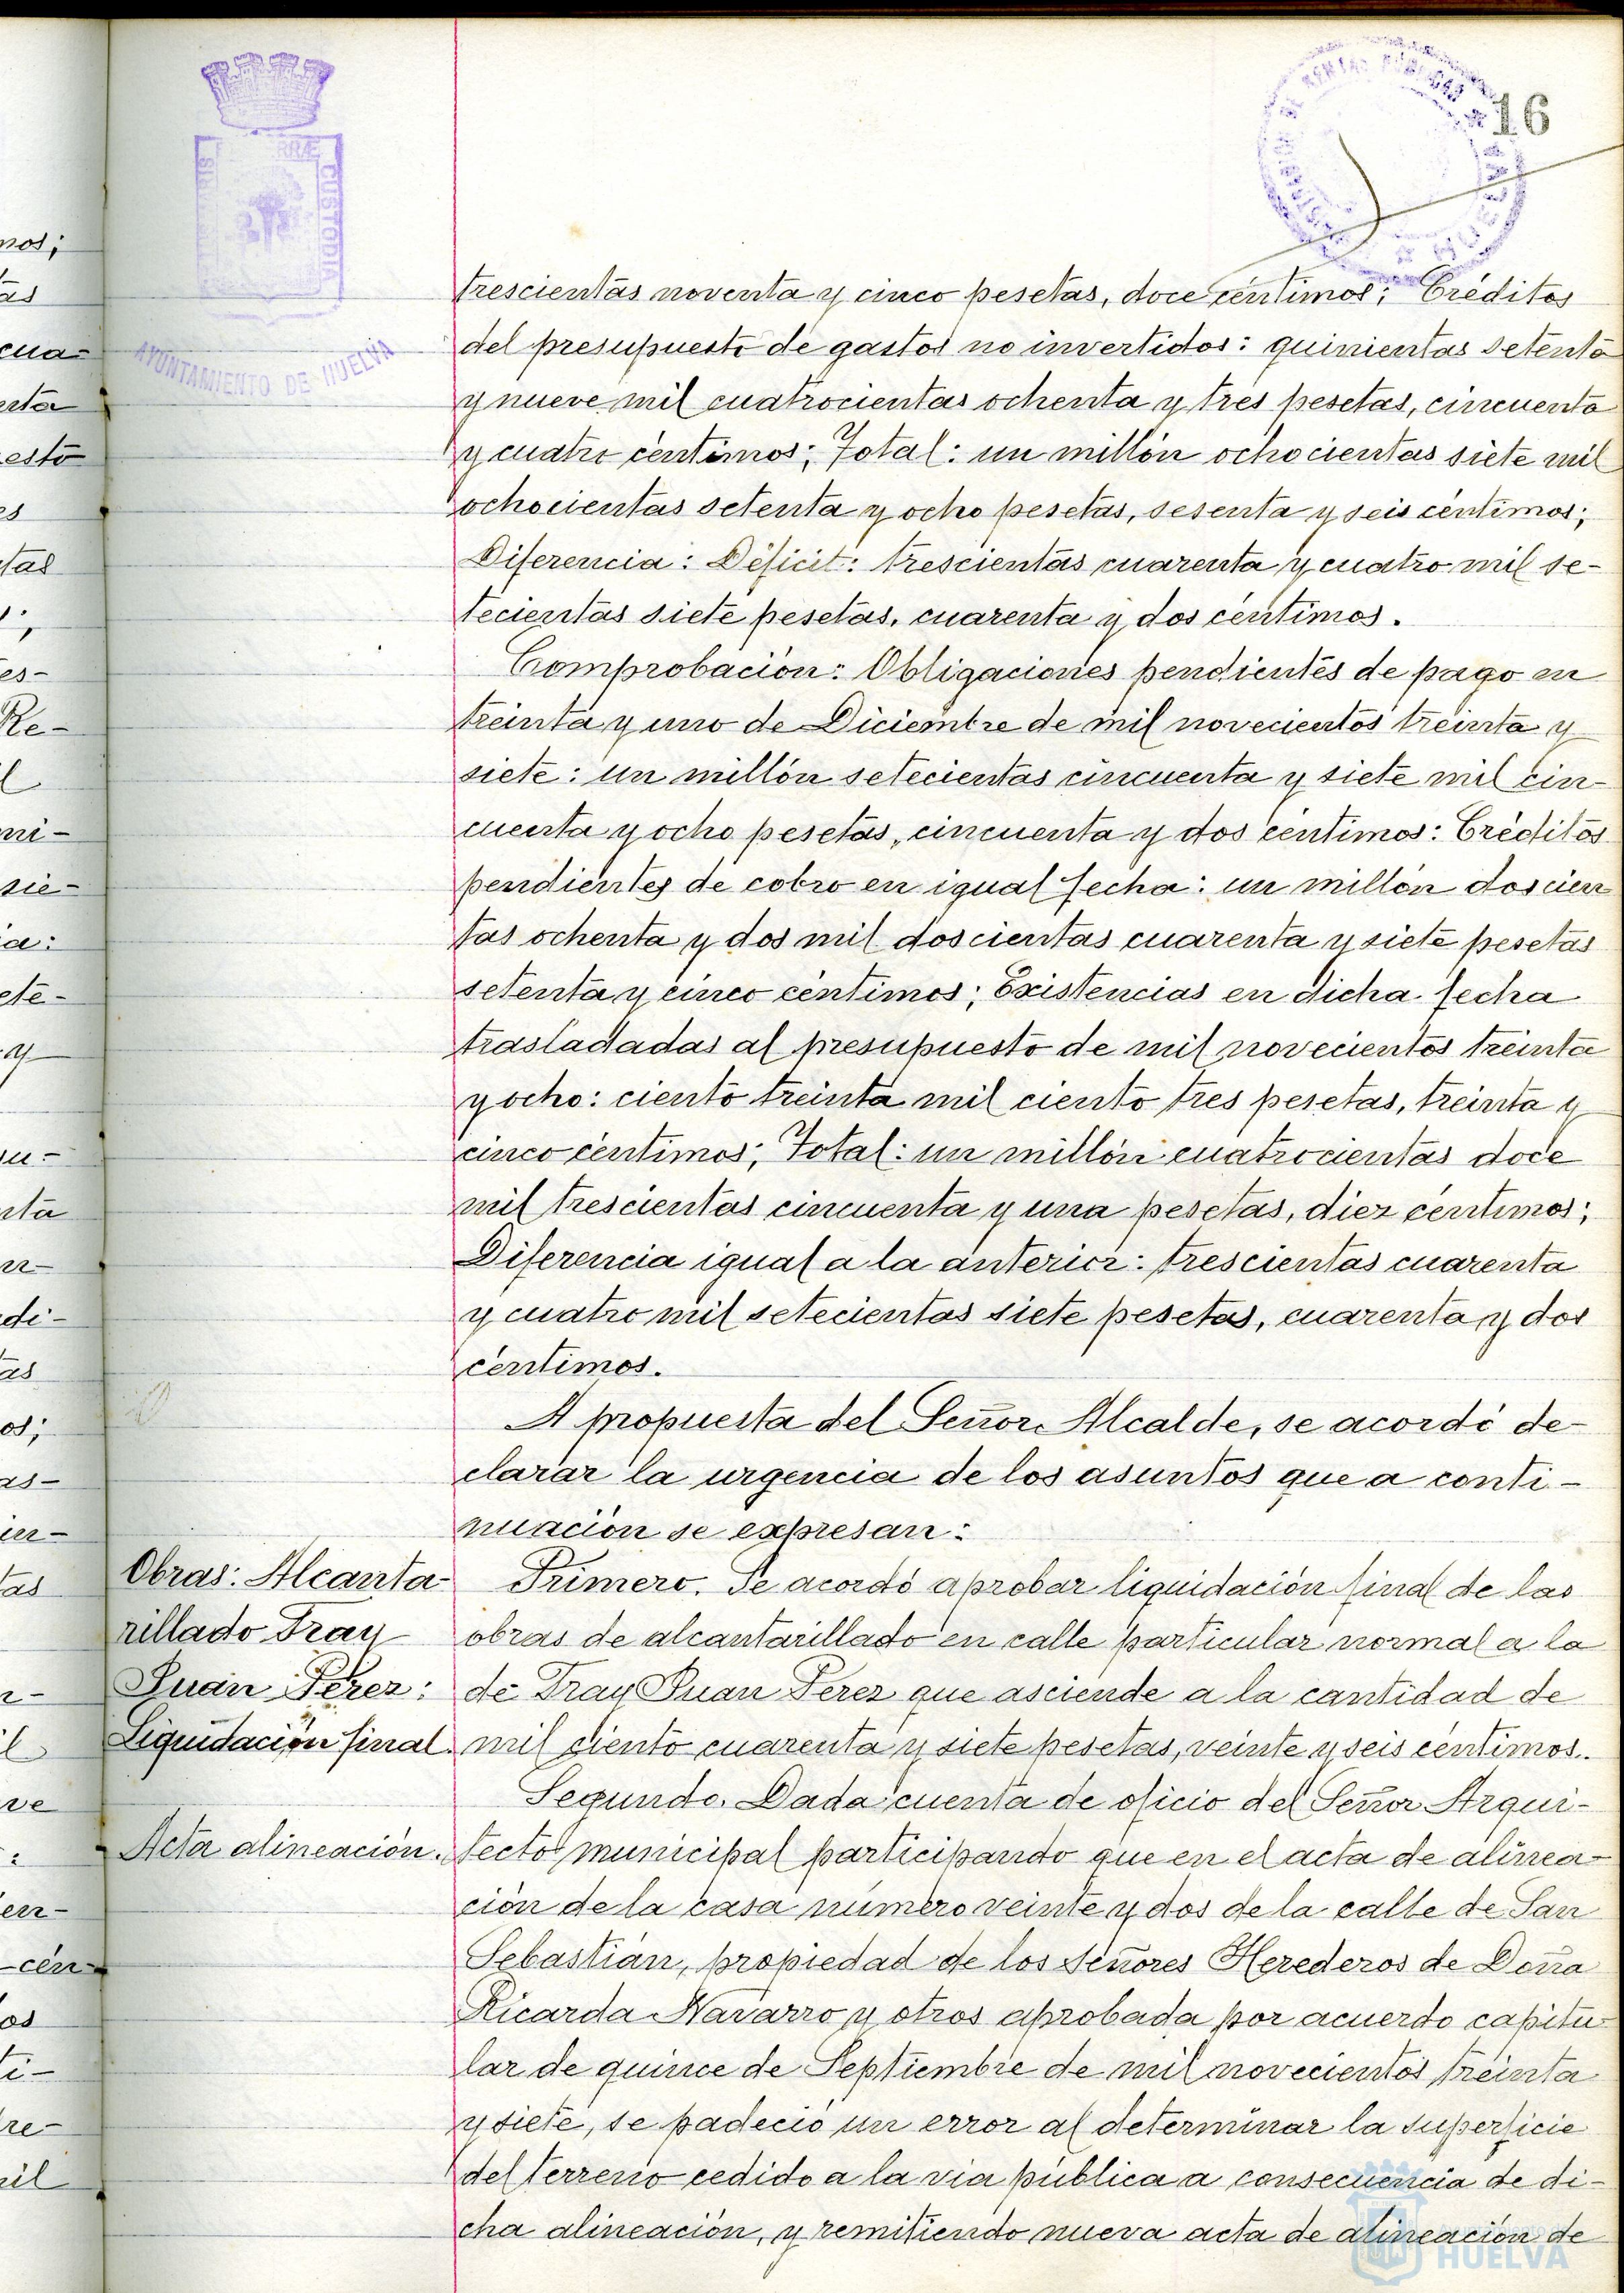 16
PORTUS
TERRÆ
CUSTODIA
AYUNTAMIENTO DE HUELVA
trescientas noventa y cinco pesetas, doce céntimos; Créditos
del presupuesto de gastos no invertidos: quinientas setenta
y nueve mil cuatrocientas ochenta y tres pesetas, cincuenta
y cuatro céntimos; Total: un millón ochocientas siete mil
ochocientas setenta y ocho pesetas, sesenta y seis céntimos;
Diferencia: Déficit: trescientas cuarenta y cuatro mil se-
tecientas siete pesetas, cuarenta y dos céntimos.
Comprobación: Obligaciones pendientes de pago en
treinta y uno de Diciembre de mil novecientos treinta y
siete: un millón setecientas cincuenta y siete mil cin-
cuenta y ocho pesetas, cincuenta y dos céntimos: Créditos
pendientes de cobro en igual fecha: un millón doscien
tas ochenta y dos mil doscientas cuarenta y siete pesetas
setenta y cinco céntimos; Existencias en dicha fecha
trasladadas al presupuesto de mil novecientos treinta
y ocho: ciento treinta mil ciento tres pesetas, treinta y
cinco céntimos; Total: un millón cuatrocientas doce
mil trescientas cincuenta y una pesetas, diez céntimos;
Diferencia igual a la anterior: trescientas cuarenta
y cuatro mil setecientas siete pesetas, cuarenta y dos
céntimos.
A propuesta del Señor Alcalde, se acordó de-
clarar la urgencia de los asuntos que a conti-
nuación se expresan:
Obras: Alcanta-
rillado Fray
Juan Pérez:
Liquidación final.
Primero. Se acordó aprobar liquidación final de las
obras de alcantarillado en calle particular normal a la
de Fray Juan Perez que asciende a la cantidad de
mil ciento cuarenta y siete pesetas, veinte y seis céntimos.
Acta alineación.
Segundo. Dada cuenta de oficio del Señor Arqui-
tecto municipal participando que en el acta de alinea-
ción de la casa número veinte y dos de la calle de San
Sebastián, propiedad de los Señores Herederos de Doña
Ricarda Navarro y otros aprobada por acuerdo capitu-
lar de quince de Septiembre de mil novecientos treinta
y siete, se padeció un error al determinar la superficie
del terreno cedido a la vía pública a consecuencia de di-
cha alineación, y remitiendo nueva acta de alineación de
HUELVA